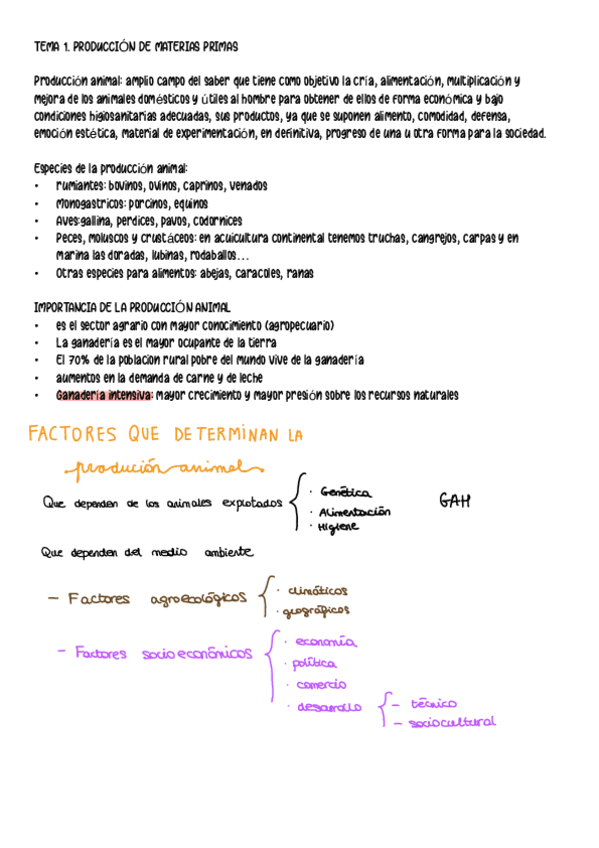 TEMA 1. PRODUCCIÓN DE MATERIAS PRIMAS
Producción animal: amplio campo del saber que tiene como objetivo la cría, alimentación, multiplicación y
mejora de los animales domésticos y útiles al hombre para obtener de ellos de forma económica y bajo
condiciones higiosanitarias adecuadas, sus productos, ya que se suponen alimento, comodidad, defensa,
emoción estética, material de experimentación, en definitiva, progreso de una u otra forma para la sociedad.
Especies de la producción animal:
• rumiantes: bovinos, ovinos, caprinos, venados
• Monogastricos: porcinos, equinos
• Aves:gallina, perdices, pavos, codornices
• Peces, moluscos y crustáceos: en acuicultura continental tenemos truchas, cangrejos, carpas y en
marina las doradas, lubinas, rodaballos...
• Otras especies para alimentos: abejas, caracoles, ranas
IMPORTANCIA DE LA PRODUCCIÓN ANIMAL
• es el sector agrario con mayor conocimiento (agropecuario)
• La ganadería es el mayor ocupante de la tierra
• El 70% de la poblacion rural pobre del mundo vive de la ganadería
• aumentos en la demanda de carne y de leche
• Ganadería intensiva: mayor crecimiento y mayor presión sobre los recursos naturales
FACTORES QUE DETERMINAN LA
produción animal
Que dependen de los animales explotados
· Genética
· Alimentación
· Higiene
GAH
Que dependen del medio ambiente
- Factores agroecológicos
· climáticos
· geográficos
- Factores socioeconómicos
· economía
· política
· comercio
· desarrollo
- técnico
- sociocultural